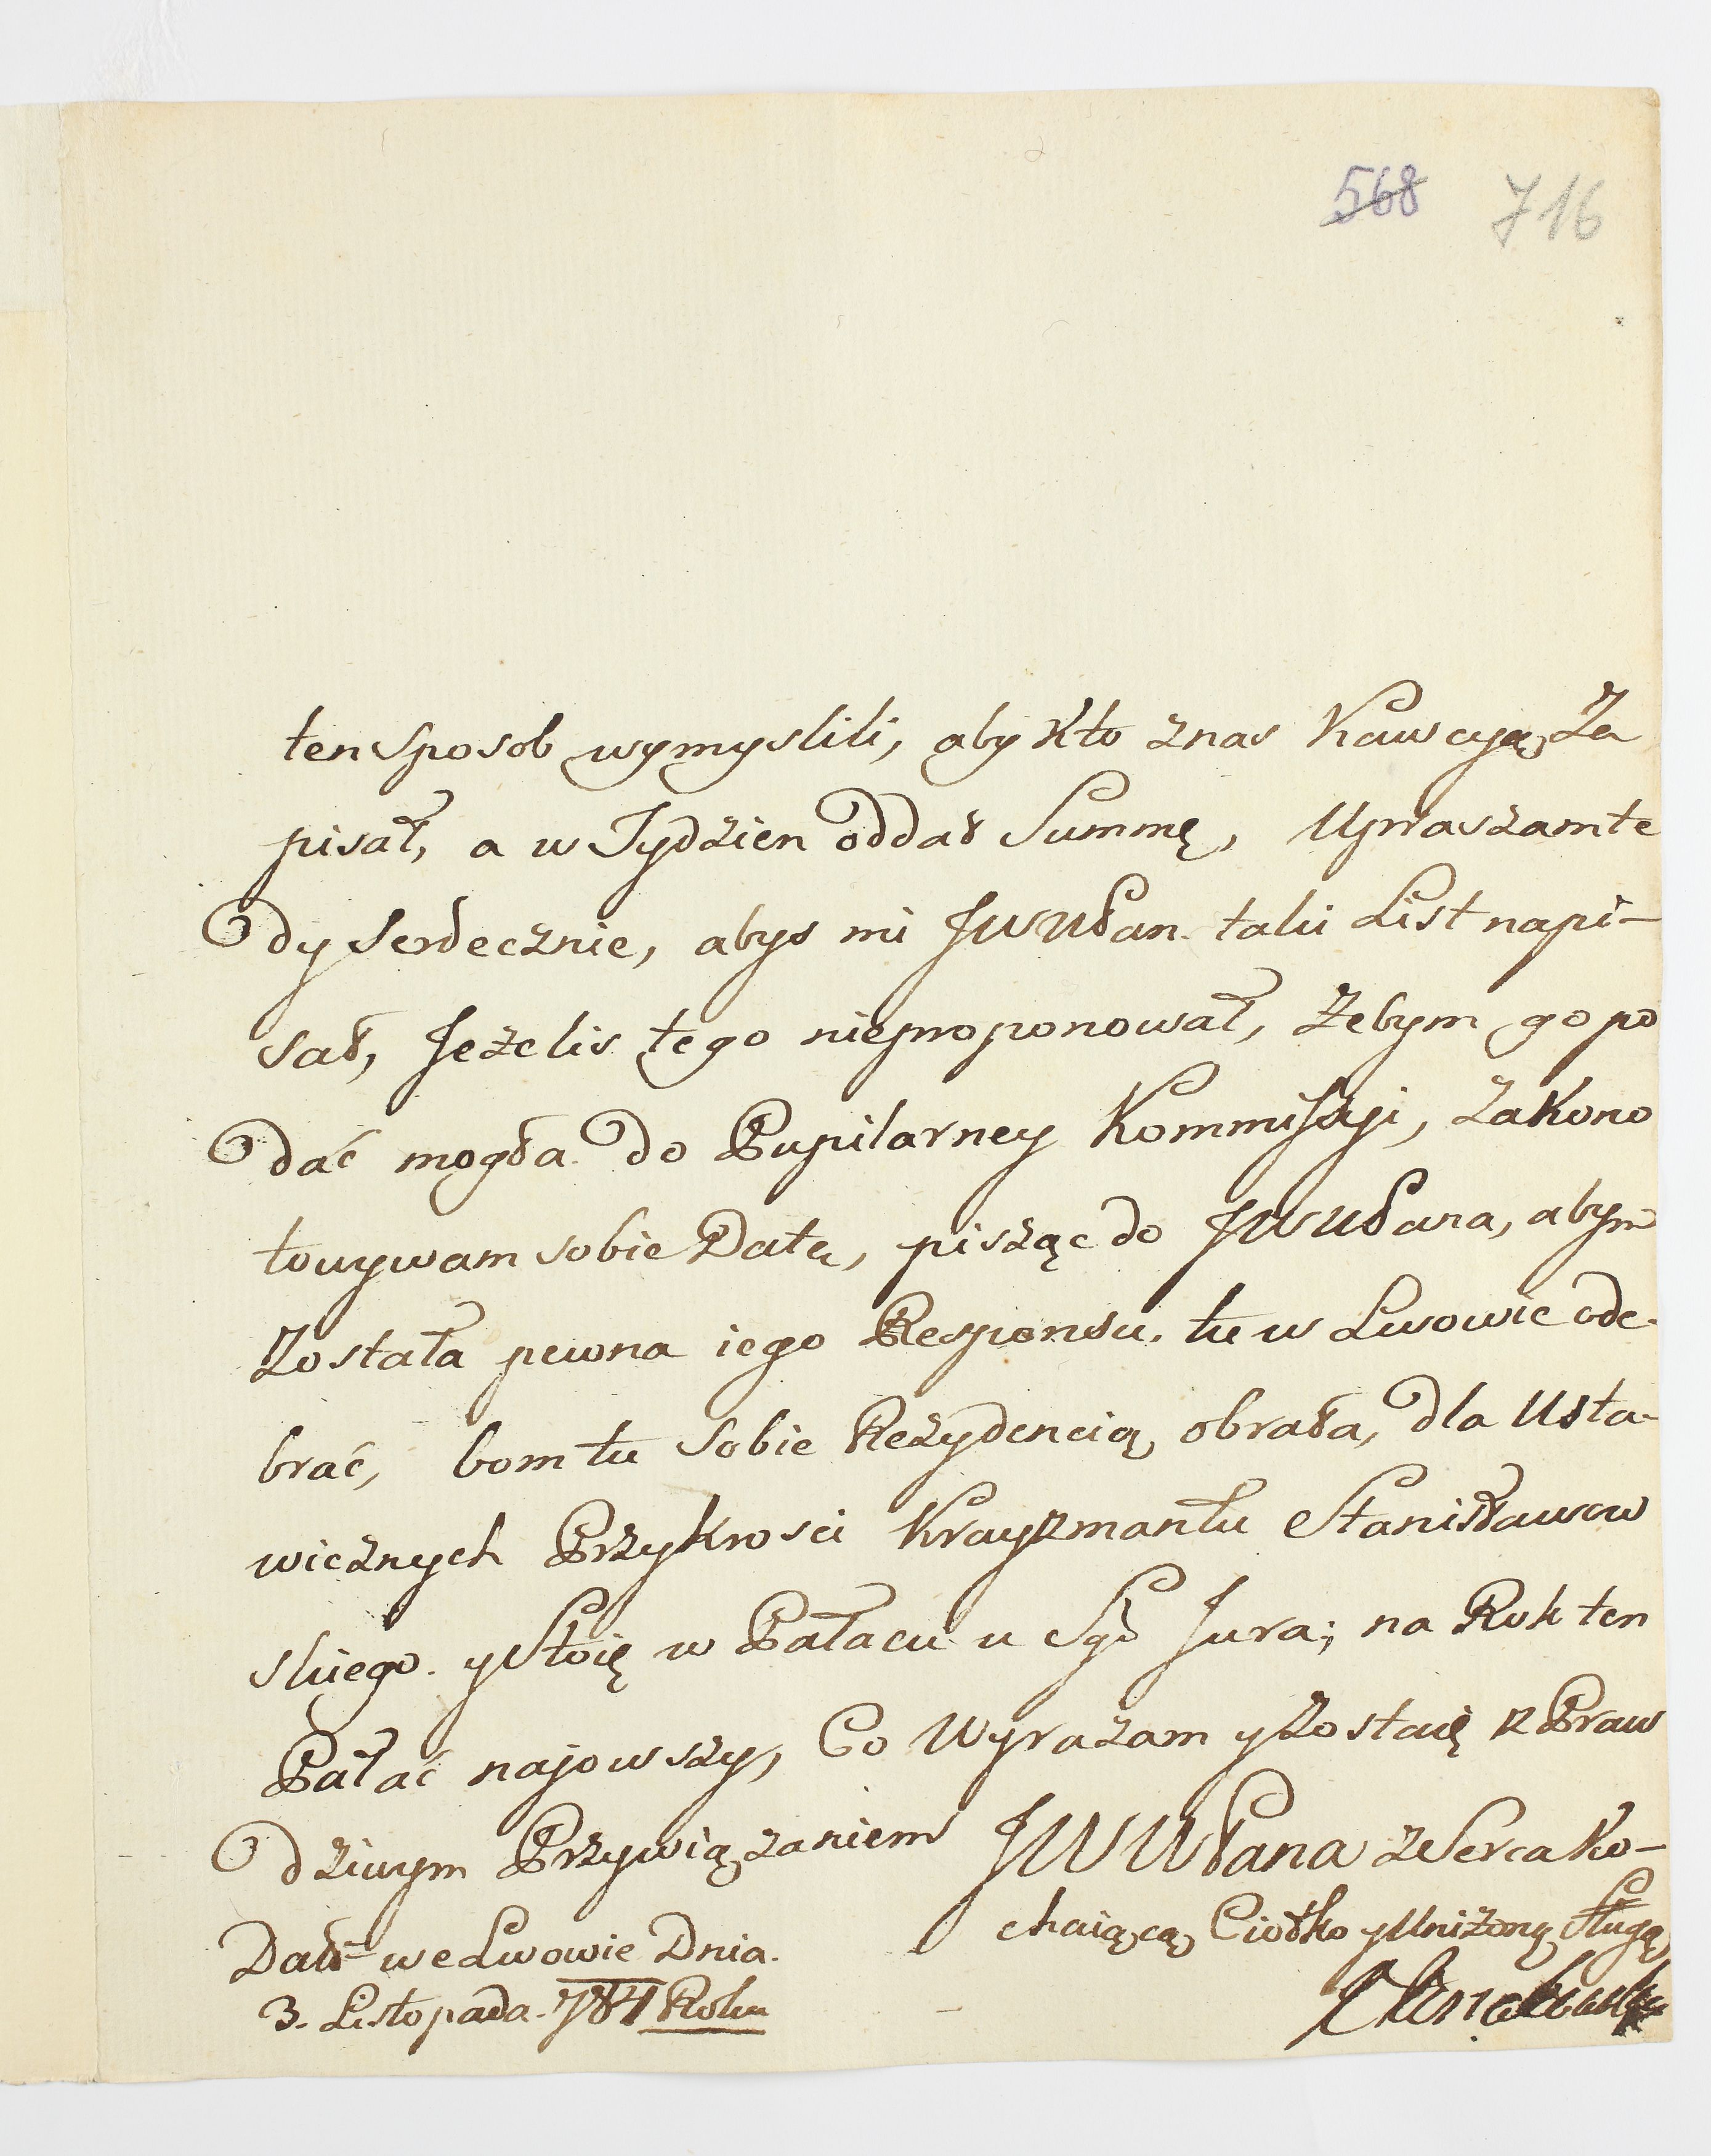 568 716
ten Sposob wymyslili, aby Kto z nas Kawcyą Za
pisał, a w Tydzien oddał Summę, Upraszam te
dy Serdecznie, abys mi JWWPan taki List napi-
sał, Jeżelis tego nieproponował, Żebym go po
dać mogła do Pupilarney Kommissyi, Zakono
towywam sobie Datę, pisząc do JWWPana, abym
Została pewna iego Responsu, tu w Lwowie ode-
brać, bom tu Sobie Rezydencią obrała, dla Usta-
wicznych Przykrosci Krayzmantu Stanisławow
skiego. y Stoię w Pałacu u Sgo Jura; na Rok ten
Pałac najowszy, Co Wyrażam y Zostaię z Praw
dziwym Przywiązaniem JWWPana z Serca Ko-
chaiącą Ciotko y Uniżoną Sługą
Dań we Lwowie Dnia.
3. Listopada. 784 Roku